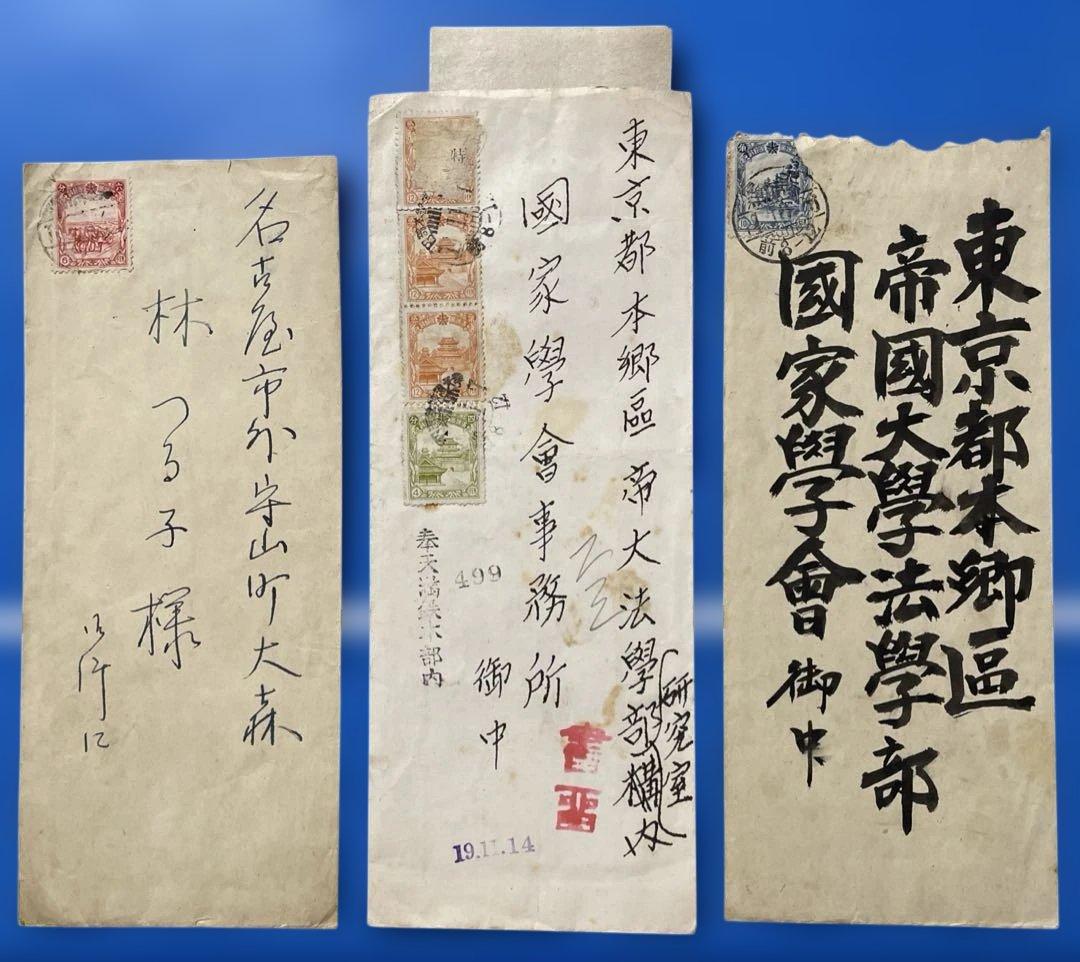 名古屋市外守山町大森
林つる子様
特
東京都本郷區帝大法學部構内
研究室
國家學會事務所
御中
書留
499
奉天満鉄本部内
19.11.14
12
12
4
東京都本郷區
帝國大學法學部
國家學會御中
前